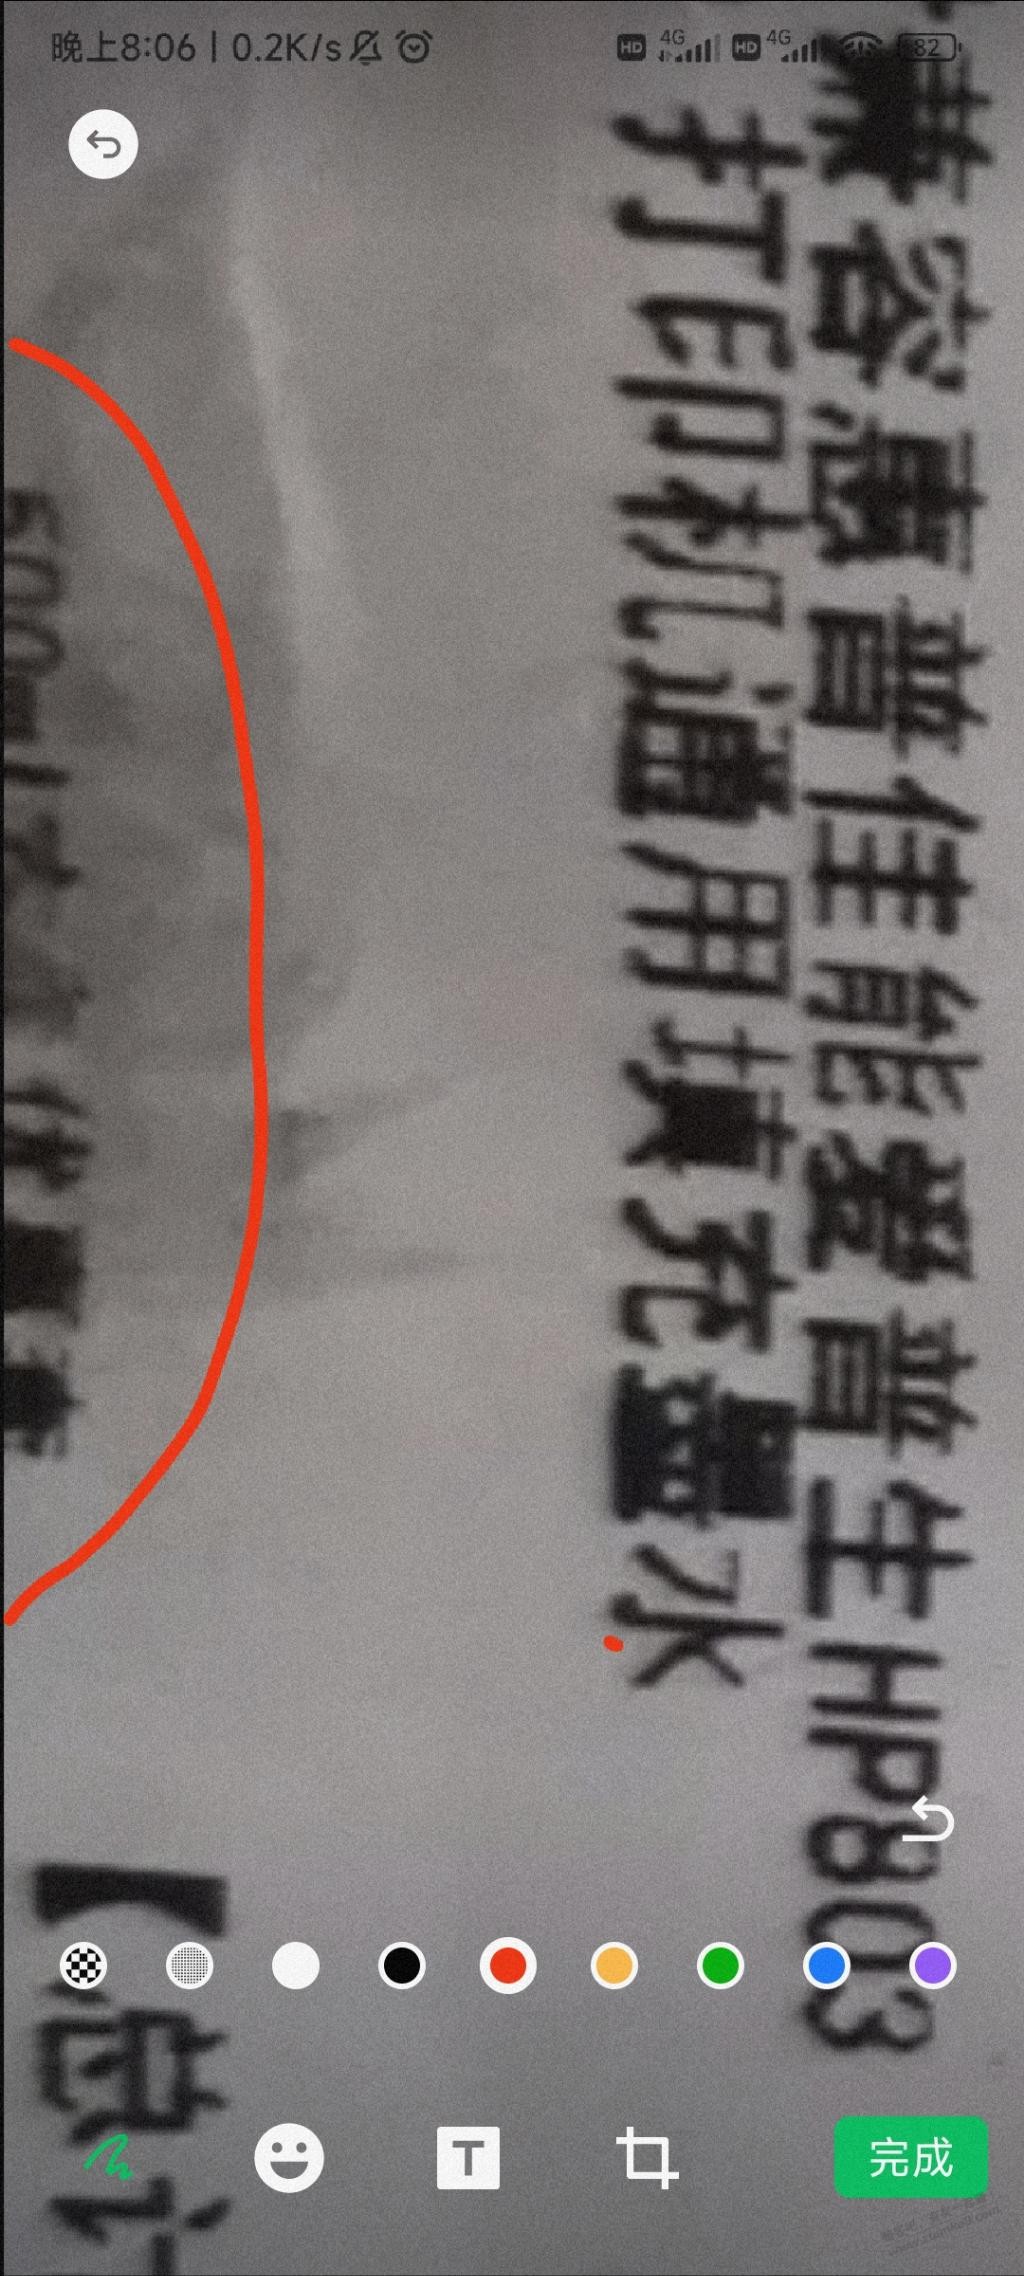 晚上8:06 | 0.2K/s
HD 4G HD 4G 82
兼容惠普佳能爱普生HP803
打印机通用填充墨水
500ml
【总
T
完成